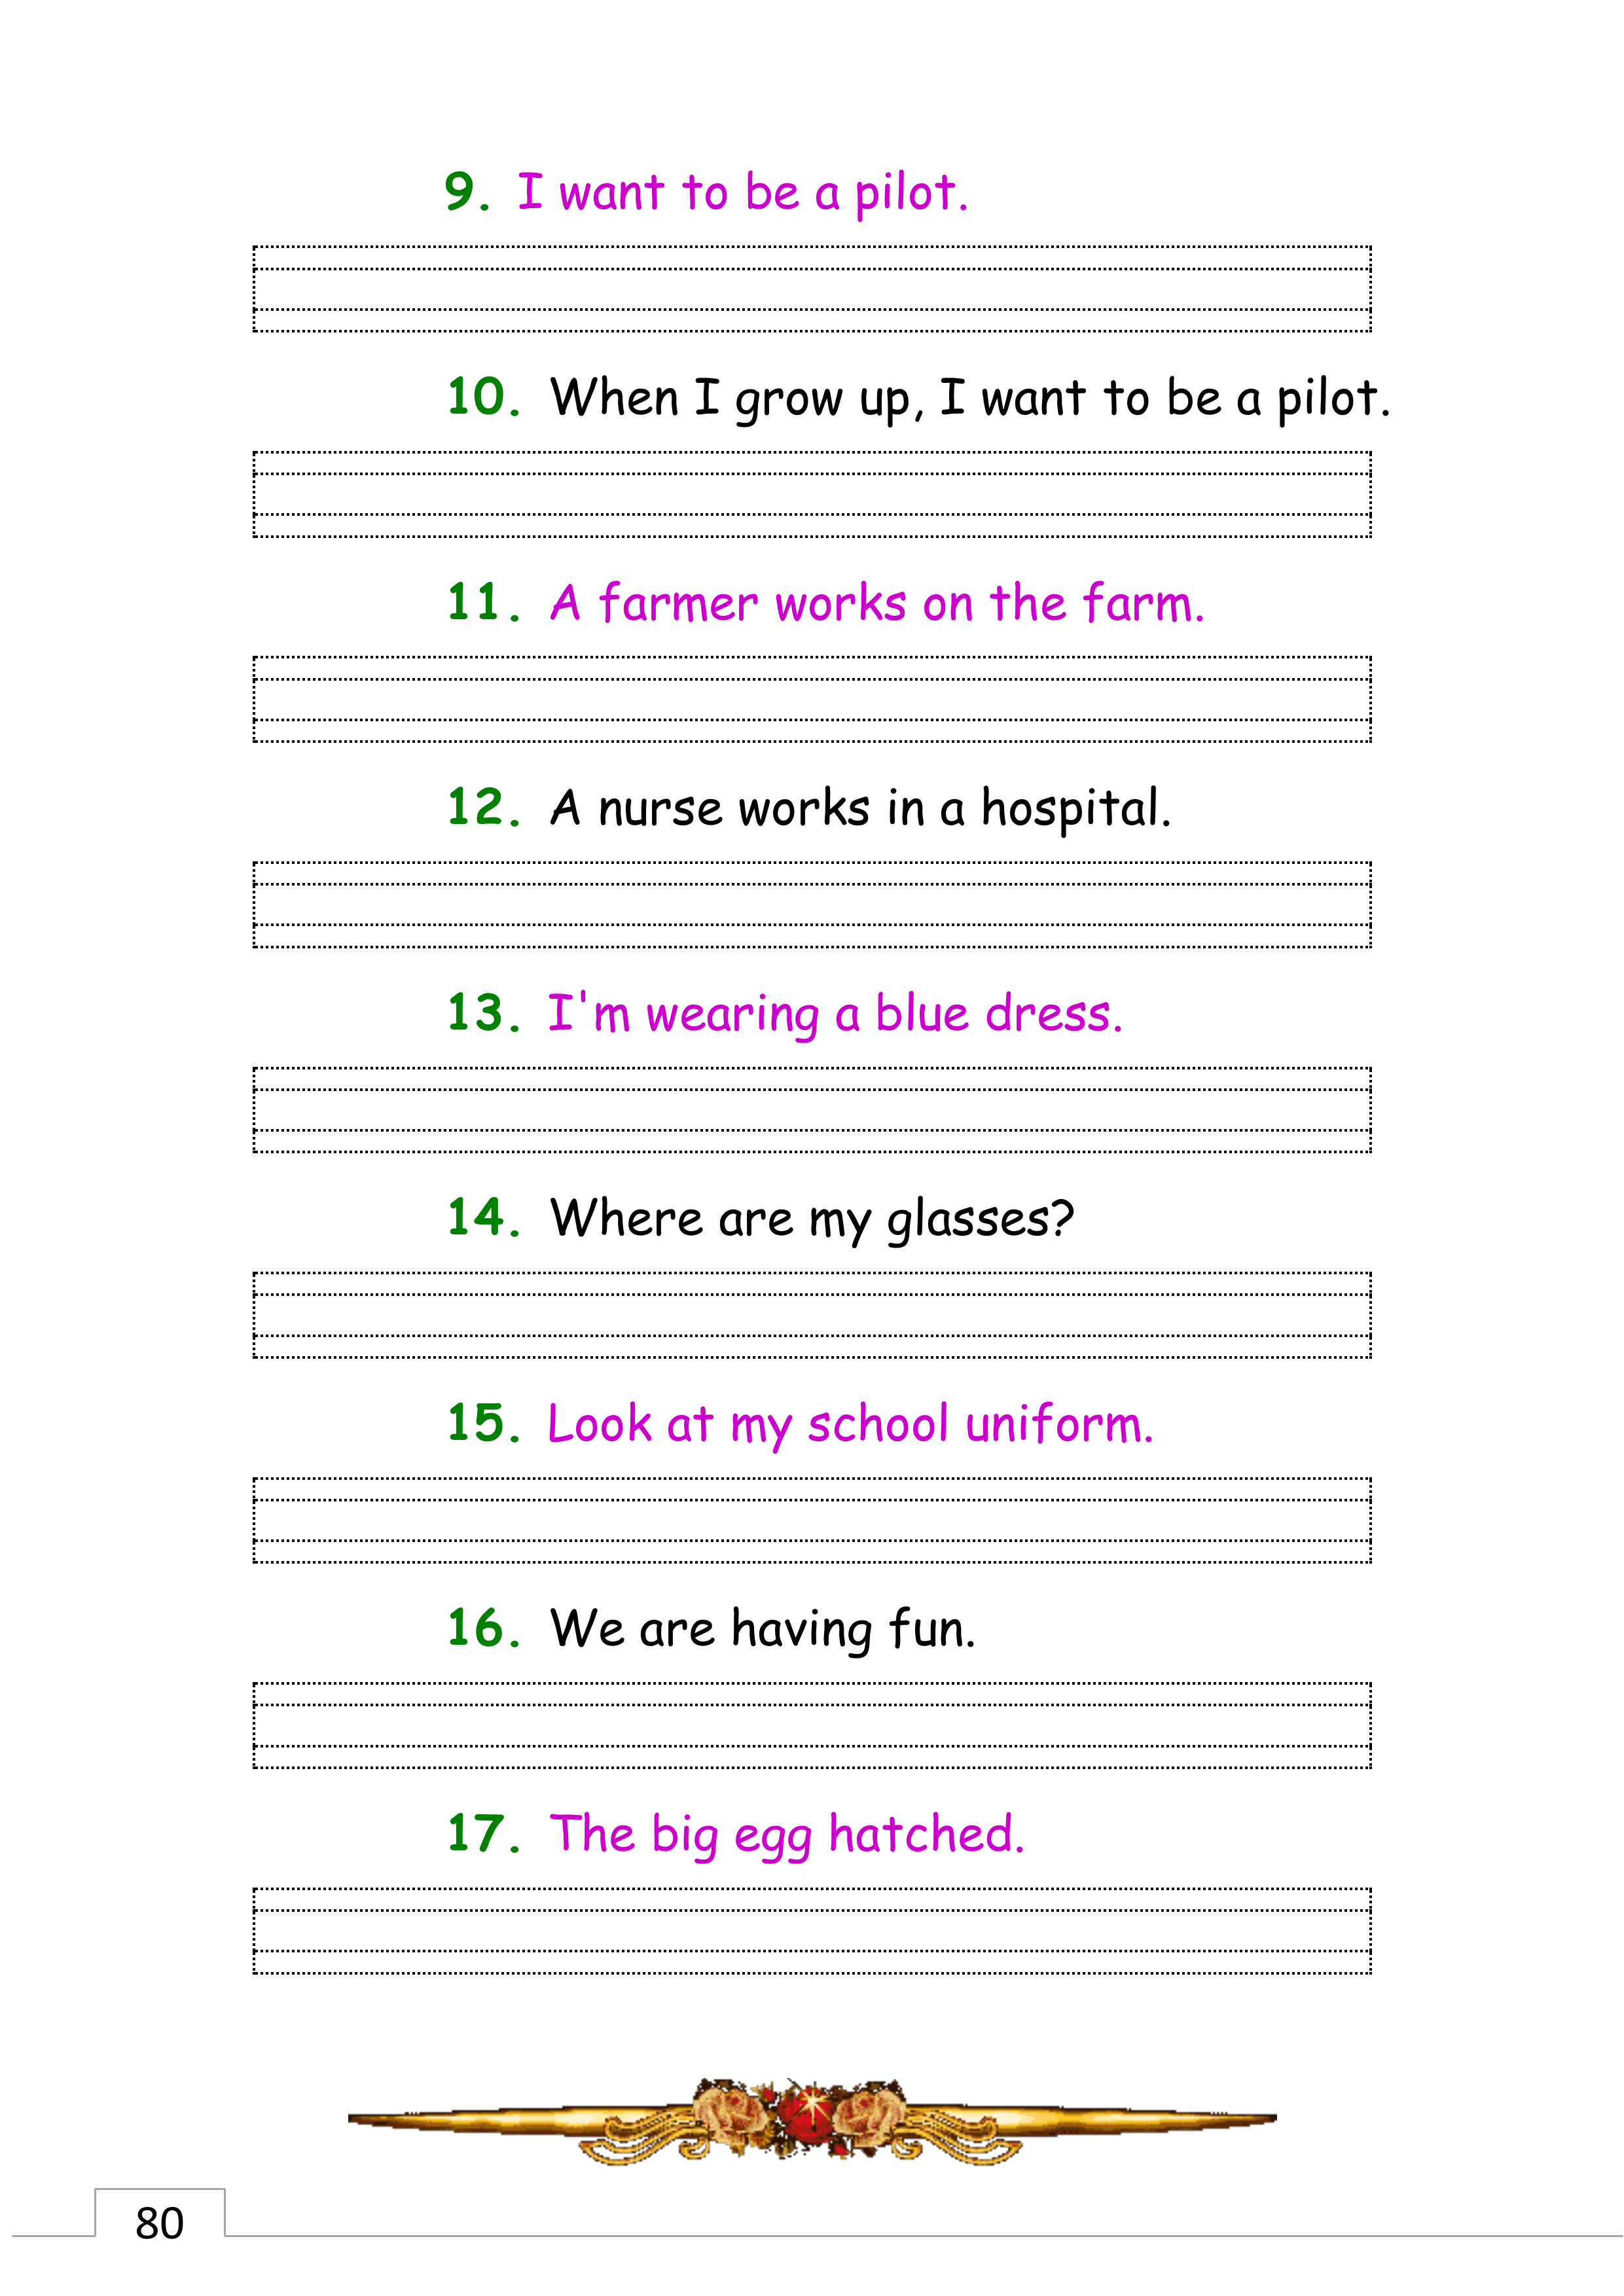 9. I want to be a pilot.
10. When I grow up, I want to be a pilot.
11. A farmer works on the farm.
12. A nurse works in a hospital.
13. I'm wearing a blue dress.
14. Where are my glasses?
15. Look at my school uniform.
16. We are having fun.
17. The big egg hatched.
80